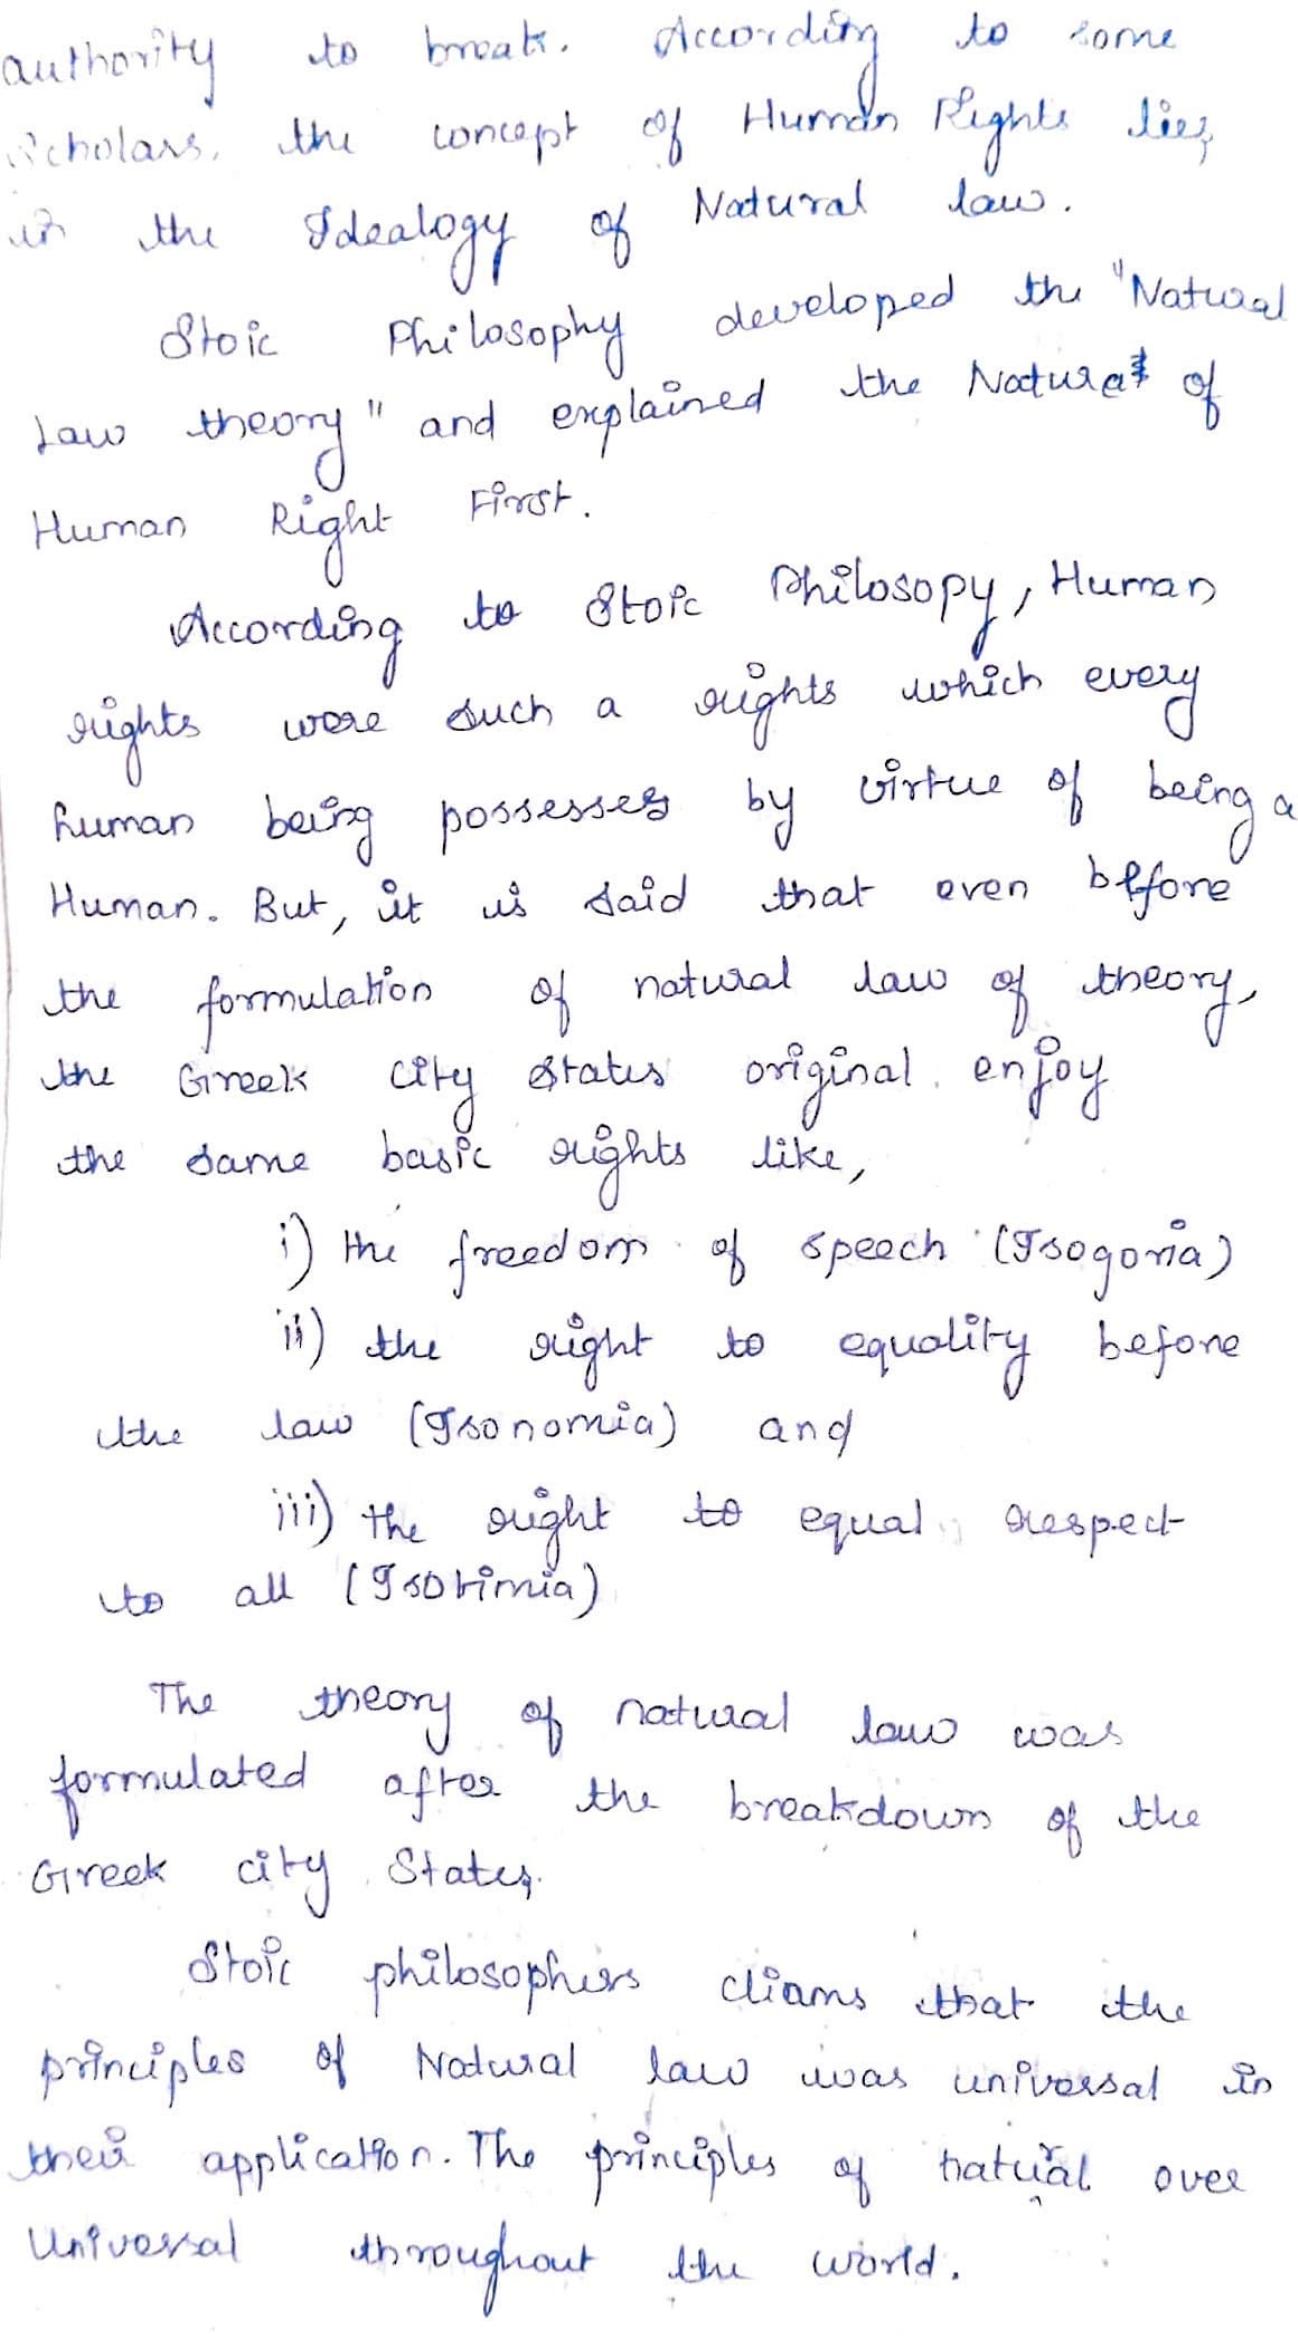 authority to break. According to some
Scholars, the concept of Human Rights lies
in the Idealogy of Natural law.
Stoic Philosophy developed the "Natural
Law theory" and explained the Nature of
Human Right First.
According to Stoic Philosopy, Human
rights were such a rights which every
human being possesses by virtue of being a
Human. But, it is said that even before
the formulation of natural law of theory,
the Greek city states original enjoy
the same basic rights like,
i) the freedom of speech (Isogoria)
ii) the right to equality before
the law (Isonomia) and
iii) the right to equal respect
to all (Isotimia)
The theory of natural law was
formulated after the breakdown of the
Greek city States.
Stoic philosophers cliams that the
principles of Natural law was universal in
their application. The principles of natural over
Universal throughout the world.